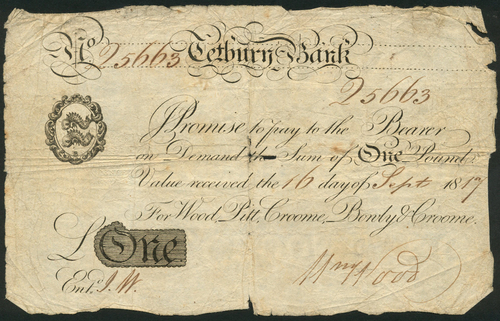 No. 25663 Tetbury Bank
25663
I Promise to pay to the Bearer
on Demand the Sum of One Pound
Value received the 16 day of Sept 1817
For Wood, Pitt, Croome, Bonly & Croome.
£ One
Entd. J.W. Wm Wood